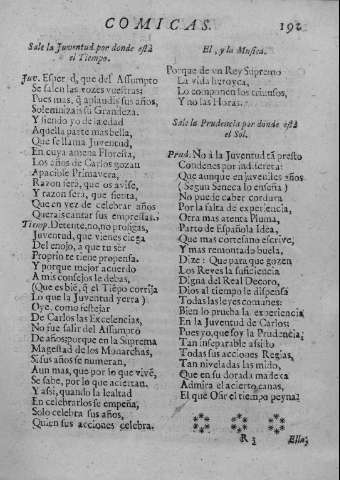 COMICAS.
192
Sale la Juventud por donde està
el Tiempo.
Juv. Esperad, que del Assumpto
Se salen las vozes vuestras:
Pues mas, q̃ aplaudis sus años,
Solemnizais su Grandeza.
Y siendo yo de la edad
Aquella parte mas bella,
Que se llama Juventud,
En cuya amena Floresta,
Los años de Carlos gozan
Apacible Primavera,
Razon serà, que os avise,
Y razon serà, que sienta,
Que en vez de celebrar años
Querais cantar sus empressas.
Tiemp. Detente, no, no prosigas,
Juventud, que vienes ciega
Del enojo, a que tu ser
Proprio te tiene propensa.
Y porque mejor acuerdo
A mis consejos le debas,
(Que es biē, q̃ el Tiēpo corrija
Lo que la Juventud yerra)
Oye, como festejar
De Carlos las Excelencias,
No fue salir del Assumpto
De años; porque en la Suprema
Magestad de los Monarchas,
Si sus años se numeran,
Aun mas, que por lo que vivē,
Se sabe, por lo que aciertan.
Y assi, quando la lealtad
En celebrarlos se empeña,
Solo celebra sus años,
Quien sus acciones celebra.
El, y la Musica.
Porque de vn Rey Supremo
La vida heroyca,
Lo componen los triunfos,
Y no las Horas.
Sale la Prudencia por donde està
el Sol.
Prud. No à la Juventud tã presto
Condenes por indiscreta:
Que aunque en juveniles años
(Segun Seneca lo enseña)
No puede caber cordura
Por la falta de experiencia,
Otra mas atenta Pluma,
Parto de Española Idea,
Que mas cortesano escrive,
Y mas remontado buela,
Dize: Que para que gozen
Los Reyes la suficiencia
Digna del Real Decoro,
Dios al tiempo le dispensa
Todas las leyes comunes:
Bien lo prueba la experiencia
En la Juventud de Carlos:
Pues yo, que soy la Prudencia,
Tan inseparable assisto
Todas sus acciones Regias,
Tan niveladas las mido,
Que en su dorada madexa
Admira el acierto canas,
El que Ofir el tiempo peyna?
R 3
Ella;